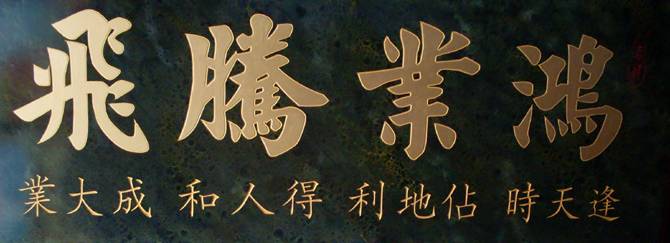 鴻業騰飛
逢天時 佔地利 得人和 成大業